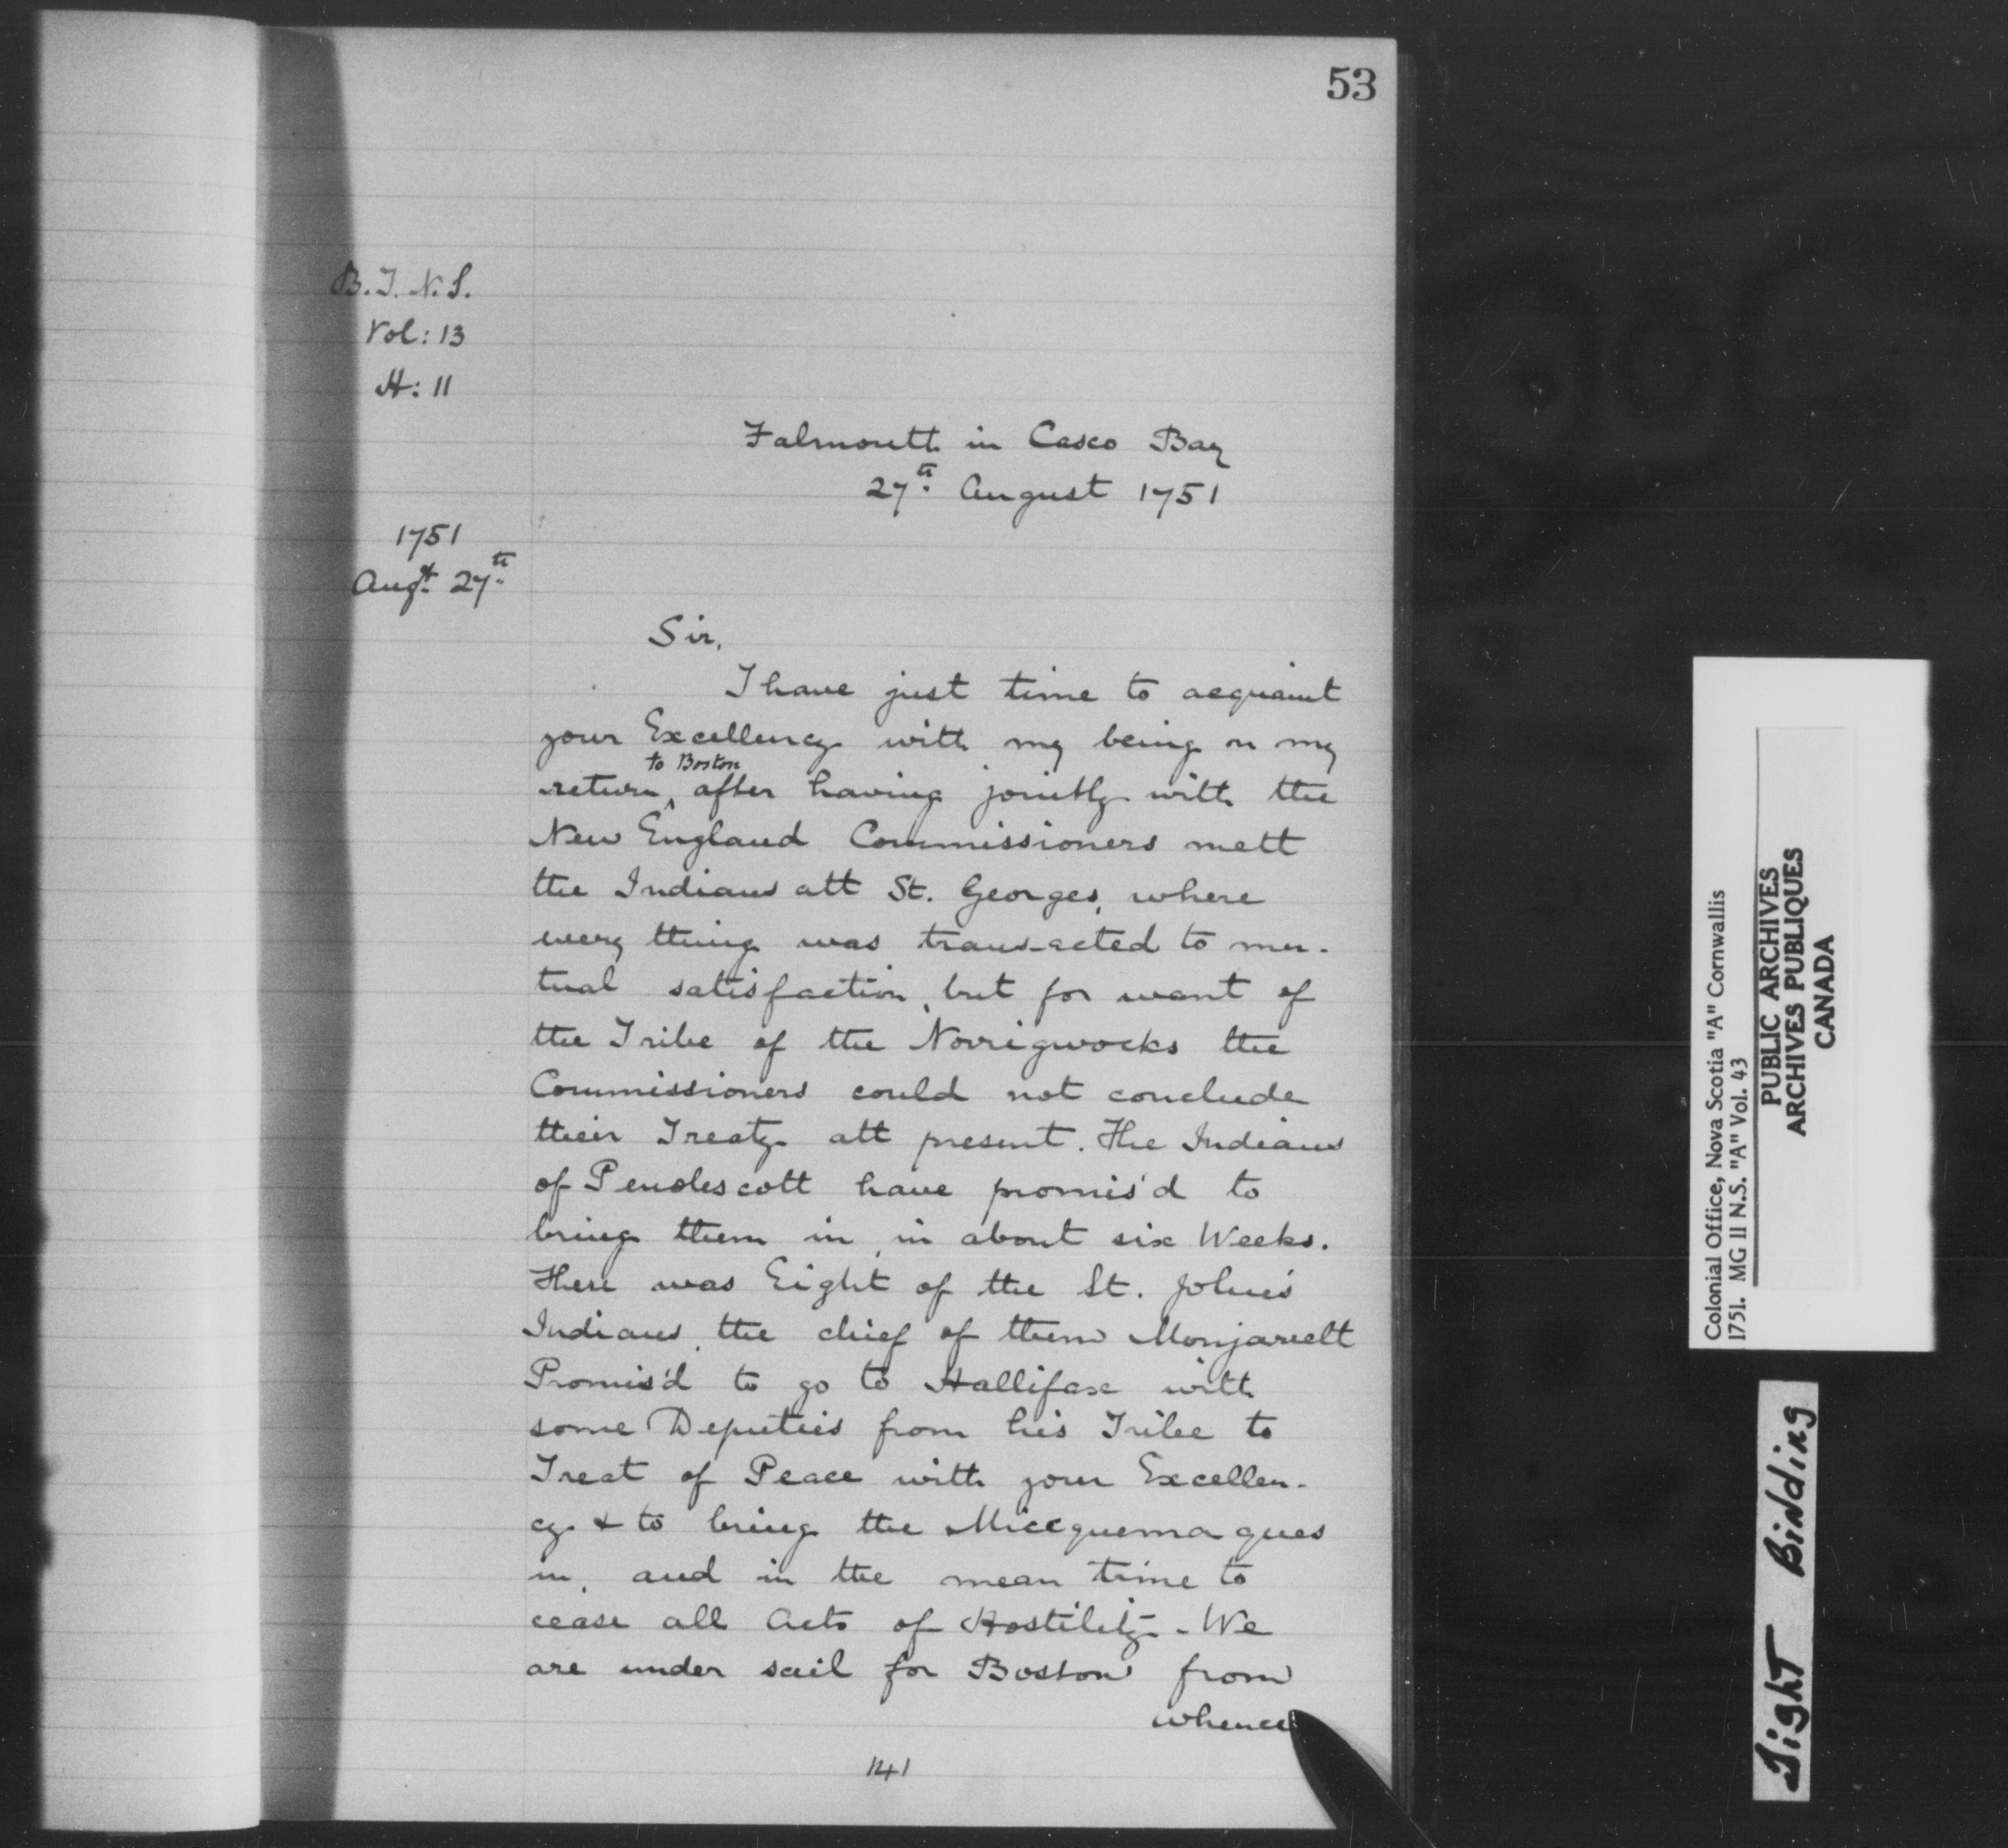 53
B.T. N.S.
Vol: 13
H: 11
Falmouth in Casco Bay
27th August 1751
1751
Augt 27th
Sir,
I have just time to acquaint
your Excellency with my being on my
to Boston
return ^ after having jointly with the
New England Commissioners mett
the Indians att St. Georges, where
every thing was transacted to mu-
tual satisfaction, but for want of
the Tribe of the Norrigwocks the
Commissioners could not conclude
their Treaty att present. The Indians
of Penobscott have promis'd to
bring them in, in about six Weeks.
There was Eight of the St. John's
Indians, the chief of them Monjarett
Promis'd to go to Hallifax with
some Deputies from his Tribe to
Treat of Peace with your Excellen-
cy & to bring the Miccquemaques
in, and in the mean time to
cease all Acts of Hostility - We
are under sail for Boston from
whence
141
Colonial Office, Nova Scotia "A" Cornwallis
1751. MG II N.S. "A" Vol. 43
PUBLIC ARCHIVES
ARCHIVES PUBLIQUES
CANADA
Tight Binding